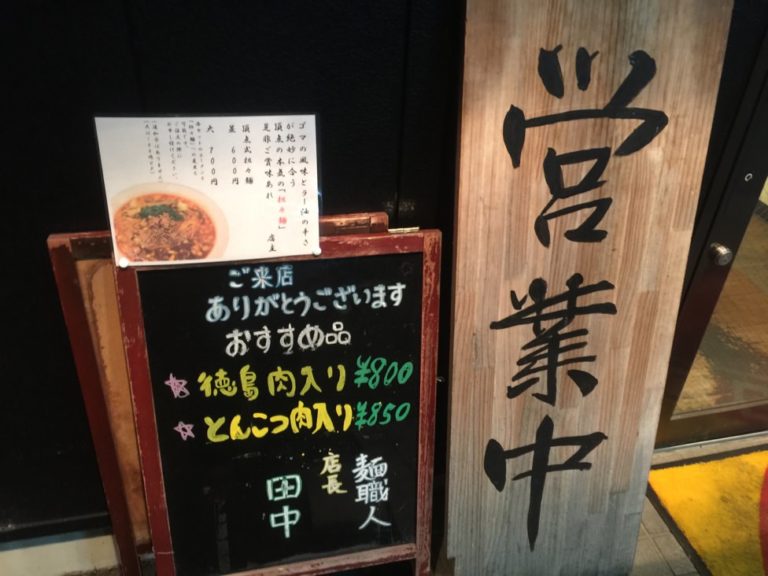 ゴマの風味とラー油の辛さ
が絶妙に合う
頂点の本気の「担々麺」
是非ご賞味あれ
店主
頂点式担々麺
並 600円
大 700円
ご来店
ありがとうございます
おすすめ品
☆徳島肉入り¥800
☆とんこつ肉入り¥850
麺職人
店長
田中
営業中